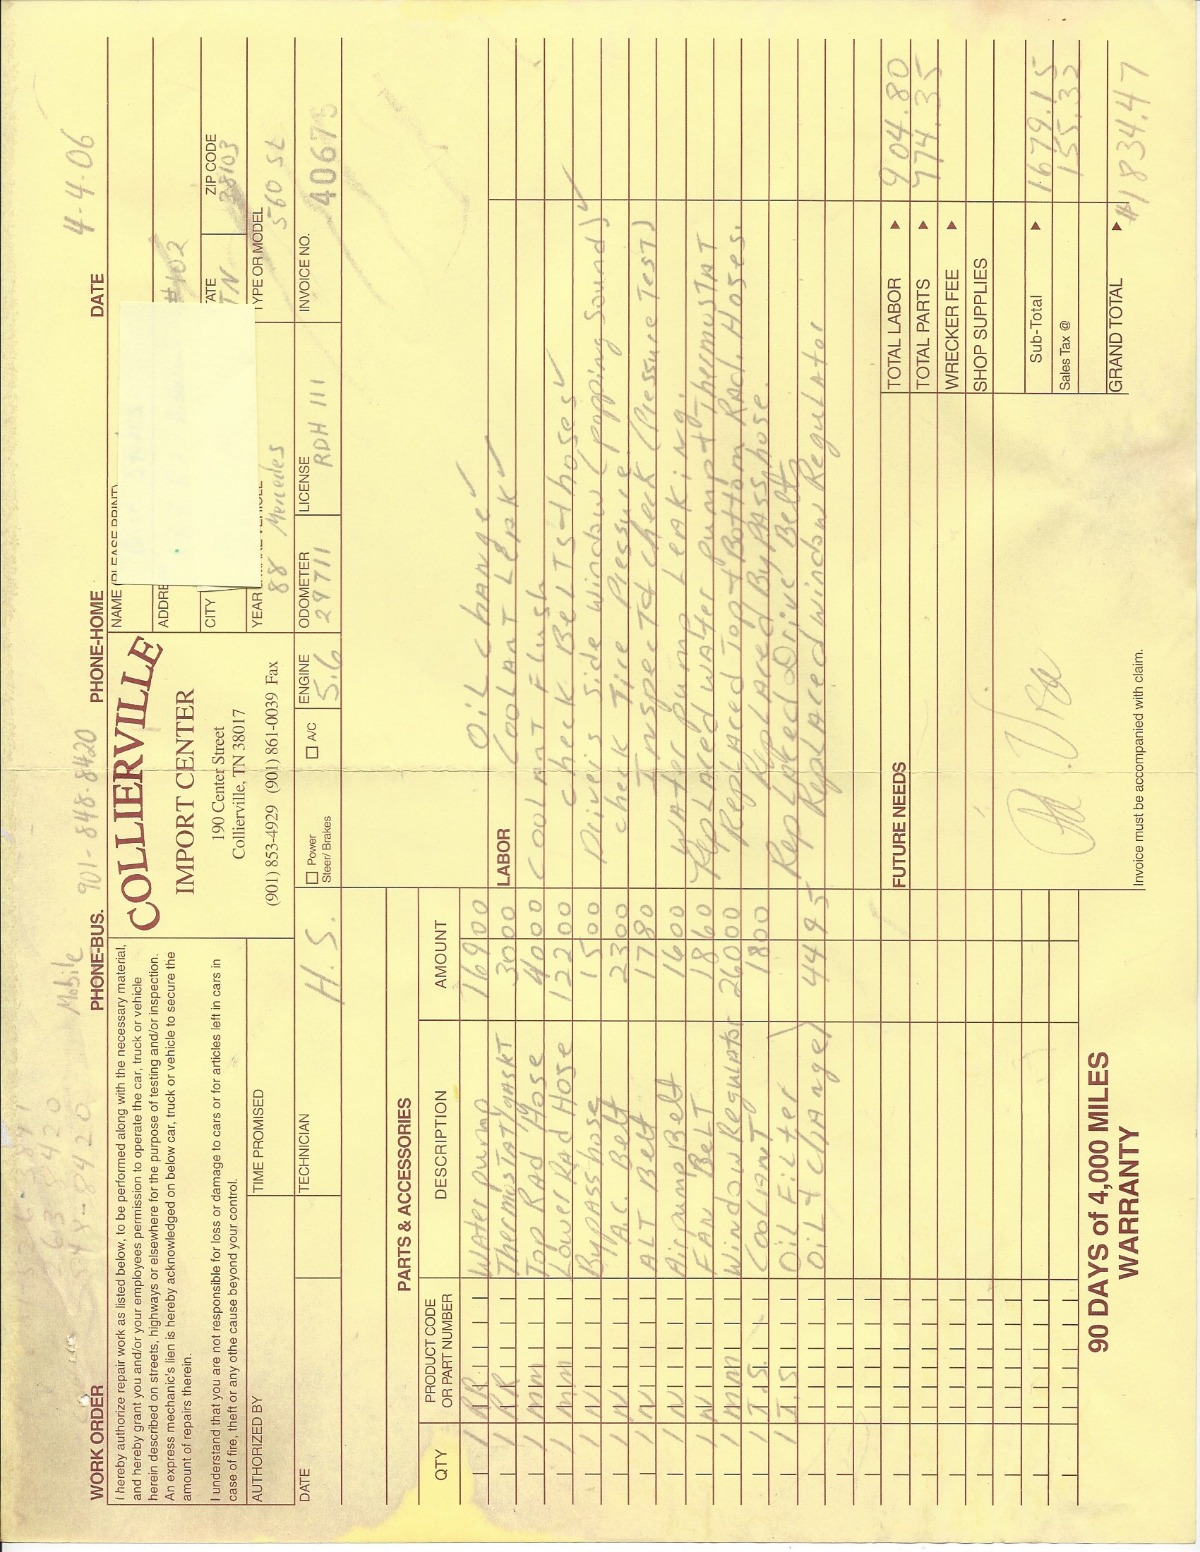 Mobile
WORK ORDER PHONE-BUS. 901-848-8420 PHONE-HOME DATE 4-4-06
I hereby authorize repair work as listed below, to be performed along with the necessary material,
and hereby grant you and/or your employees permission to operate the car, truck or vehicle
herein described on streets, highways or elsewhere for the purpose of testing and/or inspection.
An express mechanic's lien is hereby acknowledged on below car, truck or vehicle to secure the
amount of repairs therein.
I understand that you are not responsible for loss or damage to cars or for articles left in cars in
case of fire, theft or any othe cause beyond your control.
AUTHORIZED BY TIME PROMISED
DATE TECHNICIAN H.S.
COLLIERVILLE
IMPORT CENTER
190 Center Street
Collierville, TN 38017
(901) 853-4929 (901) 861-0039 Fax
Power Steer/ Brakes A/C ENGINE 5.6
NAME (PLEASE PRINT)
ADDRE #102
CITY ATE TN ZIP CODE 38103
YEAR 88 Mercedes TYPE OR MODEL 560 SL
ODOMETER 29711 LICENSE RDH 111 INVOICE NO. 40673
PARTS & ACCESSORIES
QTY PRODUCT CODE OR PART NUMBER DESCRIPTION AMOUNT
1 RR Water pump 169 00
1 RR Thermostat/gaskt 30 00
1 mm Top Rad Hose 40 00
1 mm Lower Rad Hose 122 00
1 N Bypass hose 15 00
1 N A.C. Belt 23 00
1 N ALT Belt 17 80
1 N Air pump Belt 16 00
1 N FAN BELT 18 60
1 mm Window Regulator 260 00
1 T.S. Coolant 18 00
1 T.S Oil Filter
Oil + change 44 95
90 DAYS of 4,000 MILES
WARRANTY
Oil change ✓
Coolant Leak ✓
LABOR
Coolant Flush
check Belts + hoses ✓
Driver's side window (popping sound) ✓
check Tire Pressure
Inspect d check (Pressure Test)
Water pump Leaking.
Replaced water pump + thermustat
Replaced Top + Bottom Rad. Hoses.
Replaced Bypass hose.
Replaced Drive Belts
Replaced window Regulator
FUTURE NEEDS
TOTAL LABOR 904.80
TOTAL PARTS 774.35
WRECKER FEE
SHOP SUPPLIES
Sub-Total 1679.15
Sales Tax @ 155.32
GRAND TOTAL $1834.47
Invoice must be accompanied with claim.